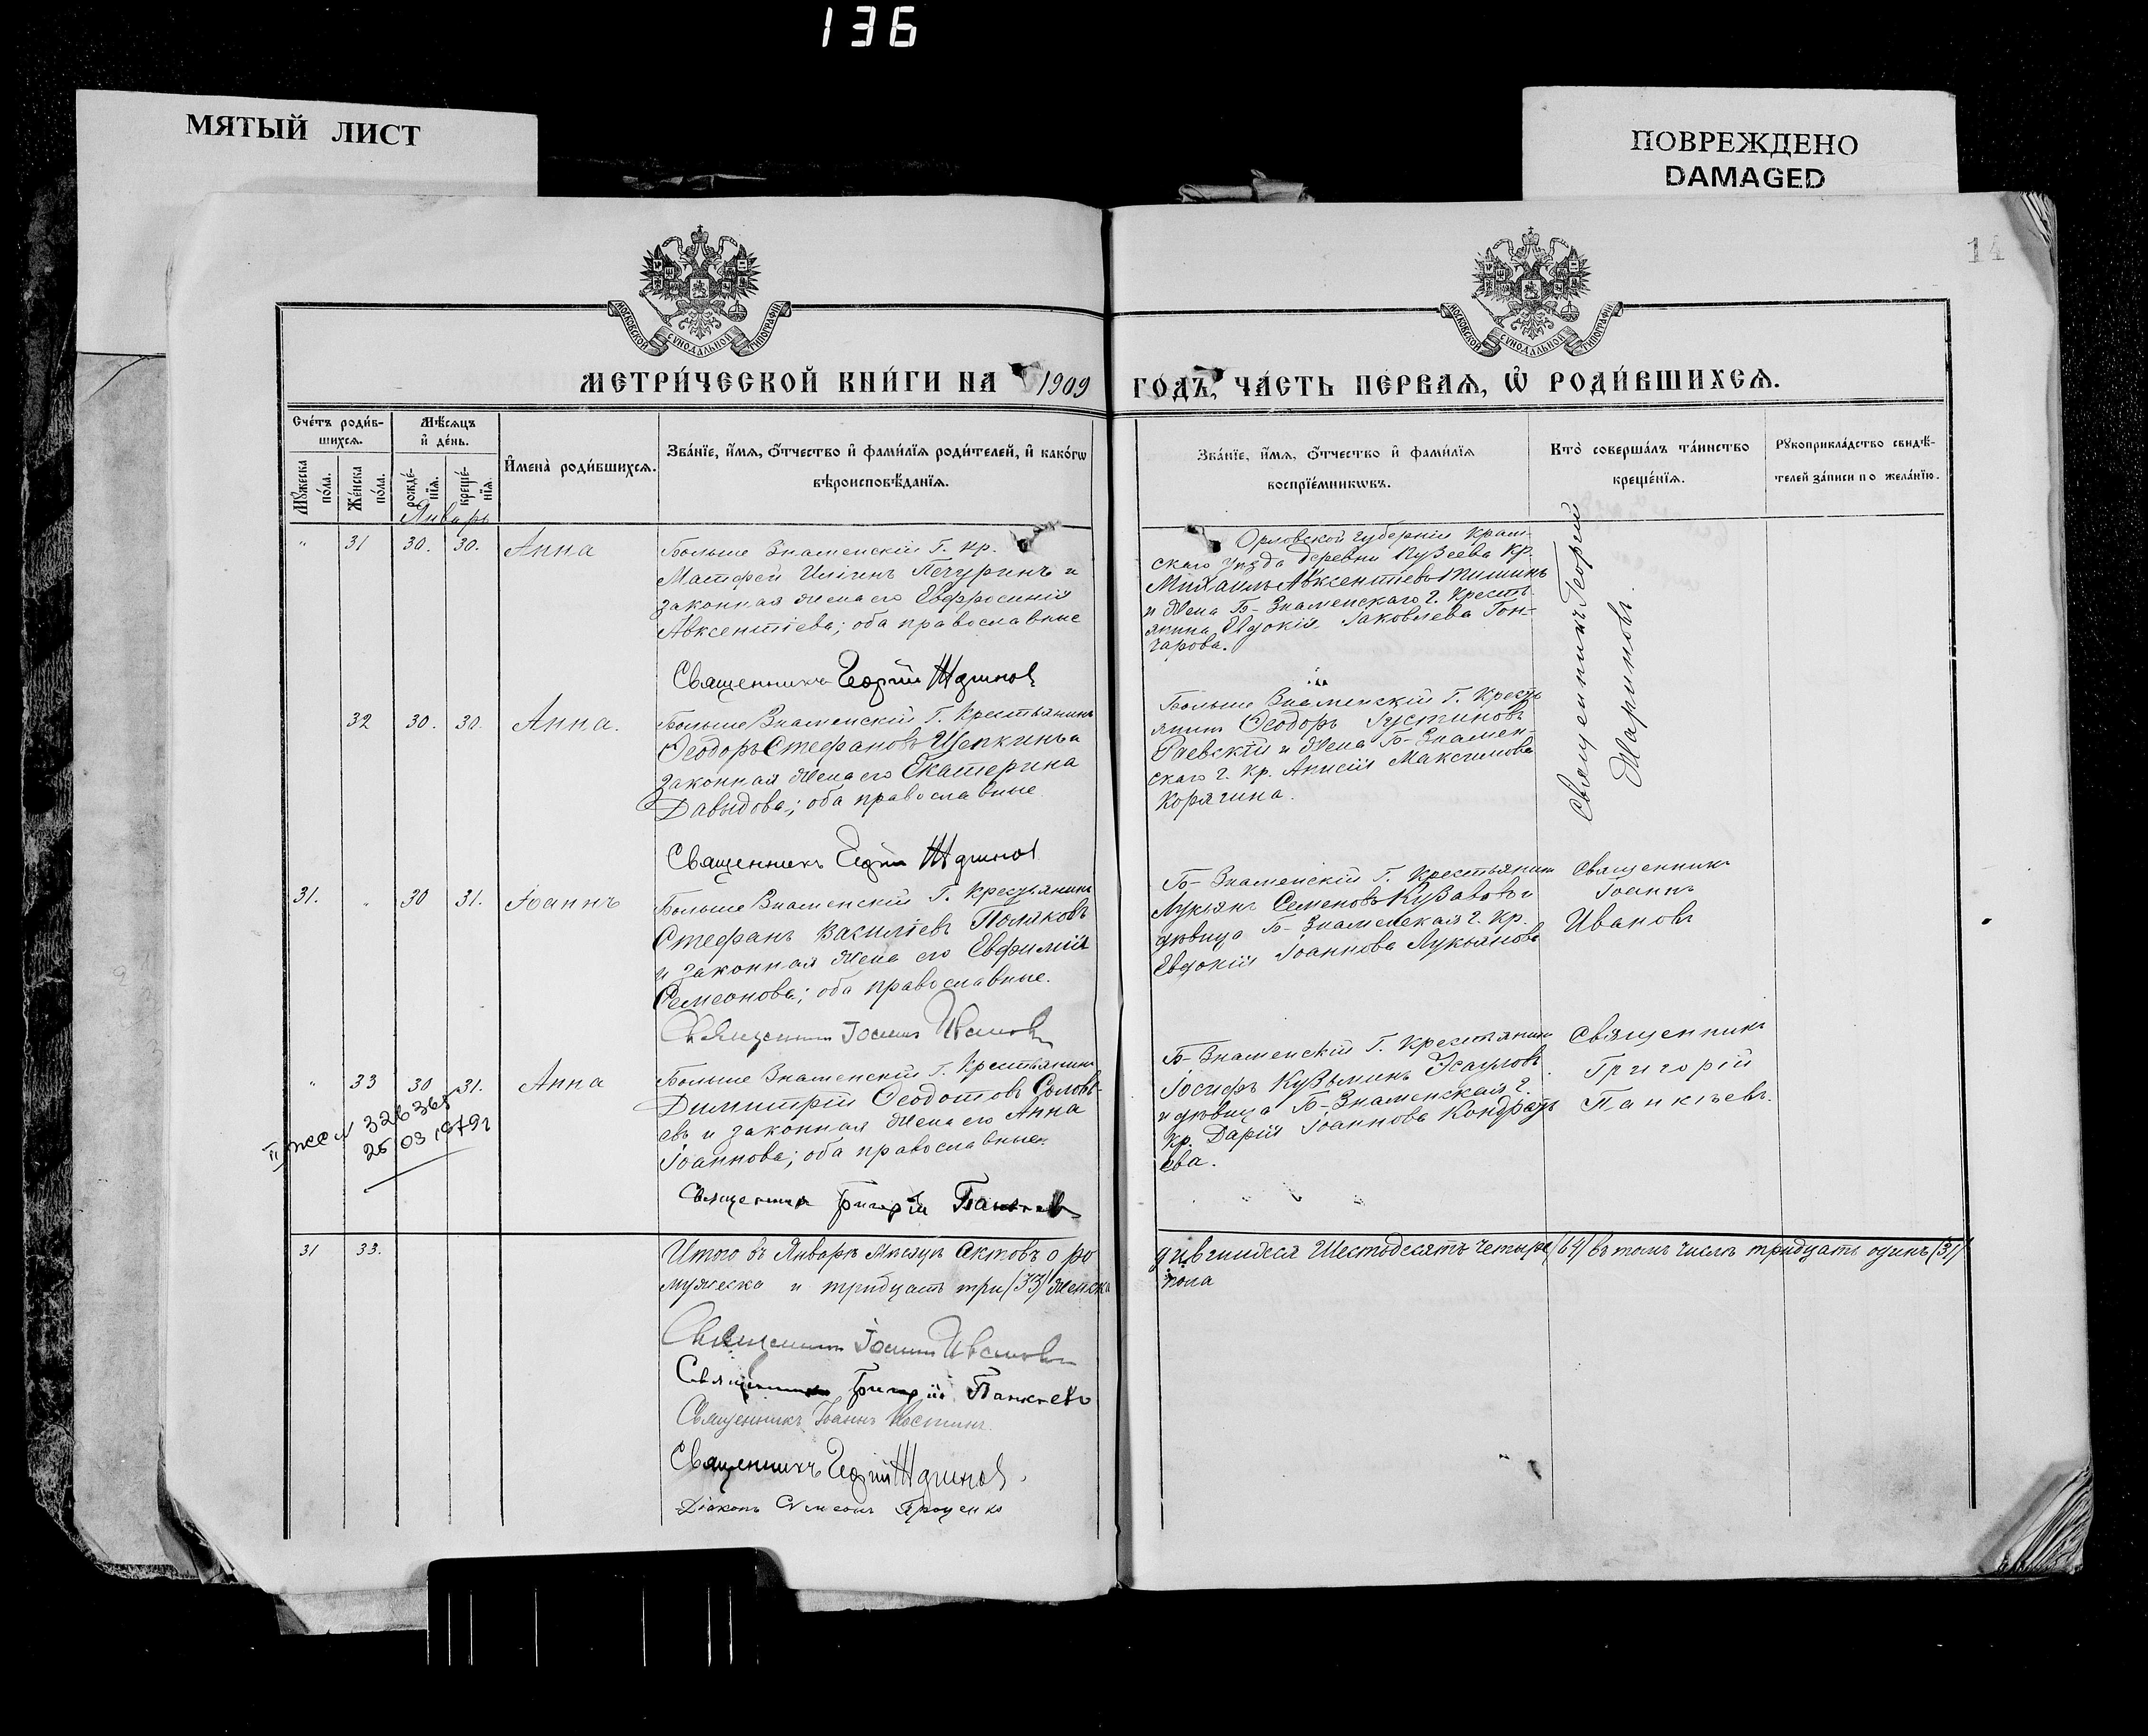 136
МЯТЫЙ ЛИСТ
ПОВРЕЖДЕНО
DAMAGED
14
МОСКОВСКОЙ СѴНОДАЛЬНОЙ ТИПОГРАФІИ
МОСКОВСКОЙ СѴНОДАЛЬНОЙ ТИПОГРАФІИ
МЕТРИ́ЧЕСКОЙ КНИ́ГИ НА 1909 ГОДЪ, ЧА́СТЬ ПЕ́РВАѦ, Ѽ РОДИ́ВШИХСѦ.
Сче́тъ роди́в-
шихсѧ.
Мѣ́сѧцъ
и҆ де́нь.
Мꙋжеска
по́ла.
Же́нска
по́ла.
рожде́-
нїѧ.
креще́-
нїѧ.
И҆мена̀ роди́вшихсѧ.
Зва́нїе, и҆́мѧ, ѻ҆́тчество и҆ фами́лїѧ роди́телей, и҆ како́гѡ
вѣроисповѣ́данїѧ.
Зва́нїе, и҆́мѧ, ѻ҆́тчество и҆ фами́лїѧ
воспрїе́мникѡвъ.
Кто̀ соверша́лъ та́инство
креще́нїѧ.
Рꙋкоприкла́дство свидѣ́-
телей за́писи по жела́нїю.
Январь
" 31 30. 30. Анна
Больше Знаменскій Г. кр.
Матфей Иліинъ Печуринъ и
законная жена его Евфросинія
Авксентіева; оба православные
Священникъ Георгій Жаринов
Орловской губерніи Крам-
скаго уезда деревни Пузеева кр.
Михаилъ Авксентіевъ Тишинъ
и жена Б-Знаменскаго г. Кресть
янина Евдокія Іаковлева Гон-
чарова.
Священникъ Георгій
Жариновъ.
32 30. 30. Анна.
Больше Знаменскій Г. Крестьянинъ
Ѳеодоръ Стефановъ Щепкинъ и
законная жена его Екатерина
Давыдова; оба православные
Священникъ Георгій Жаринов
Больше Знаменскій Г. Кресть
янинъ Ѳеодоръ Іустиновъ
Раевскій и жена Б-Знамен-
скаго г. кр. Анисія Максимова
Корягина.
31. " 30 31. Іоаннъ
Больше Знаменскій Г. Крестьянинъ
Стефанъ Василіевъ Поляковъ
и законная жена его Евфимія
Семеонова; оба православные.
Священникъ Іоаннъ Ивановъ
Б-Знаменскій Г. Крестьянинъ
Лукьянъ Семеновъ Кузавовъ и
девица Б-Знаменская г. кр.
Евдокія Іоаннова Лукьянова
Священникъ
Іоаннъ
Ивановъ
" 33 30 31. Анна
Больше Знаменскій Г. Крестьянинъ
Димитрій Ѳеодотовъ Соловь-
евъ и законная жена его Анна
Іоаннова; оба православные.
Священникъ Григорій Панкѣевъ
Б-Знаменскій Г. Крестьянинъ
Іосифъ Кузьминъ Эсауловъ
и девица Б-Знаменская г.
кр. Дарія Іоаннова Кондрать
ева.
Священникъ
Григорій
Панкѣевъ.
326365
25 03 1979г
31 33.
Итого въ Январѣ мѣсяцѣ актовъ о ро дившихся шестьдесятъ четыре (64) въ томъ числѣ тридцать одинъ (31)
мужеска и тридцать три (33) женска пола
Священникъ Іоаннъ Ивановъ
Священникъ Григорій Панкѣевъ
Священникъ Іоаннъ Костинъ
Священникъ Георгій Жаринов.
Діаконъ Сѵмеонъ Проценко